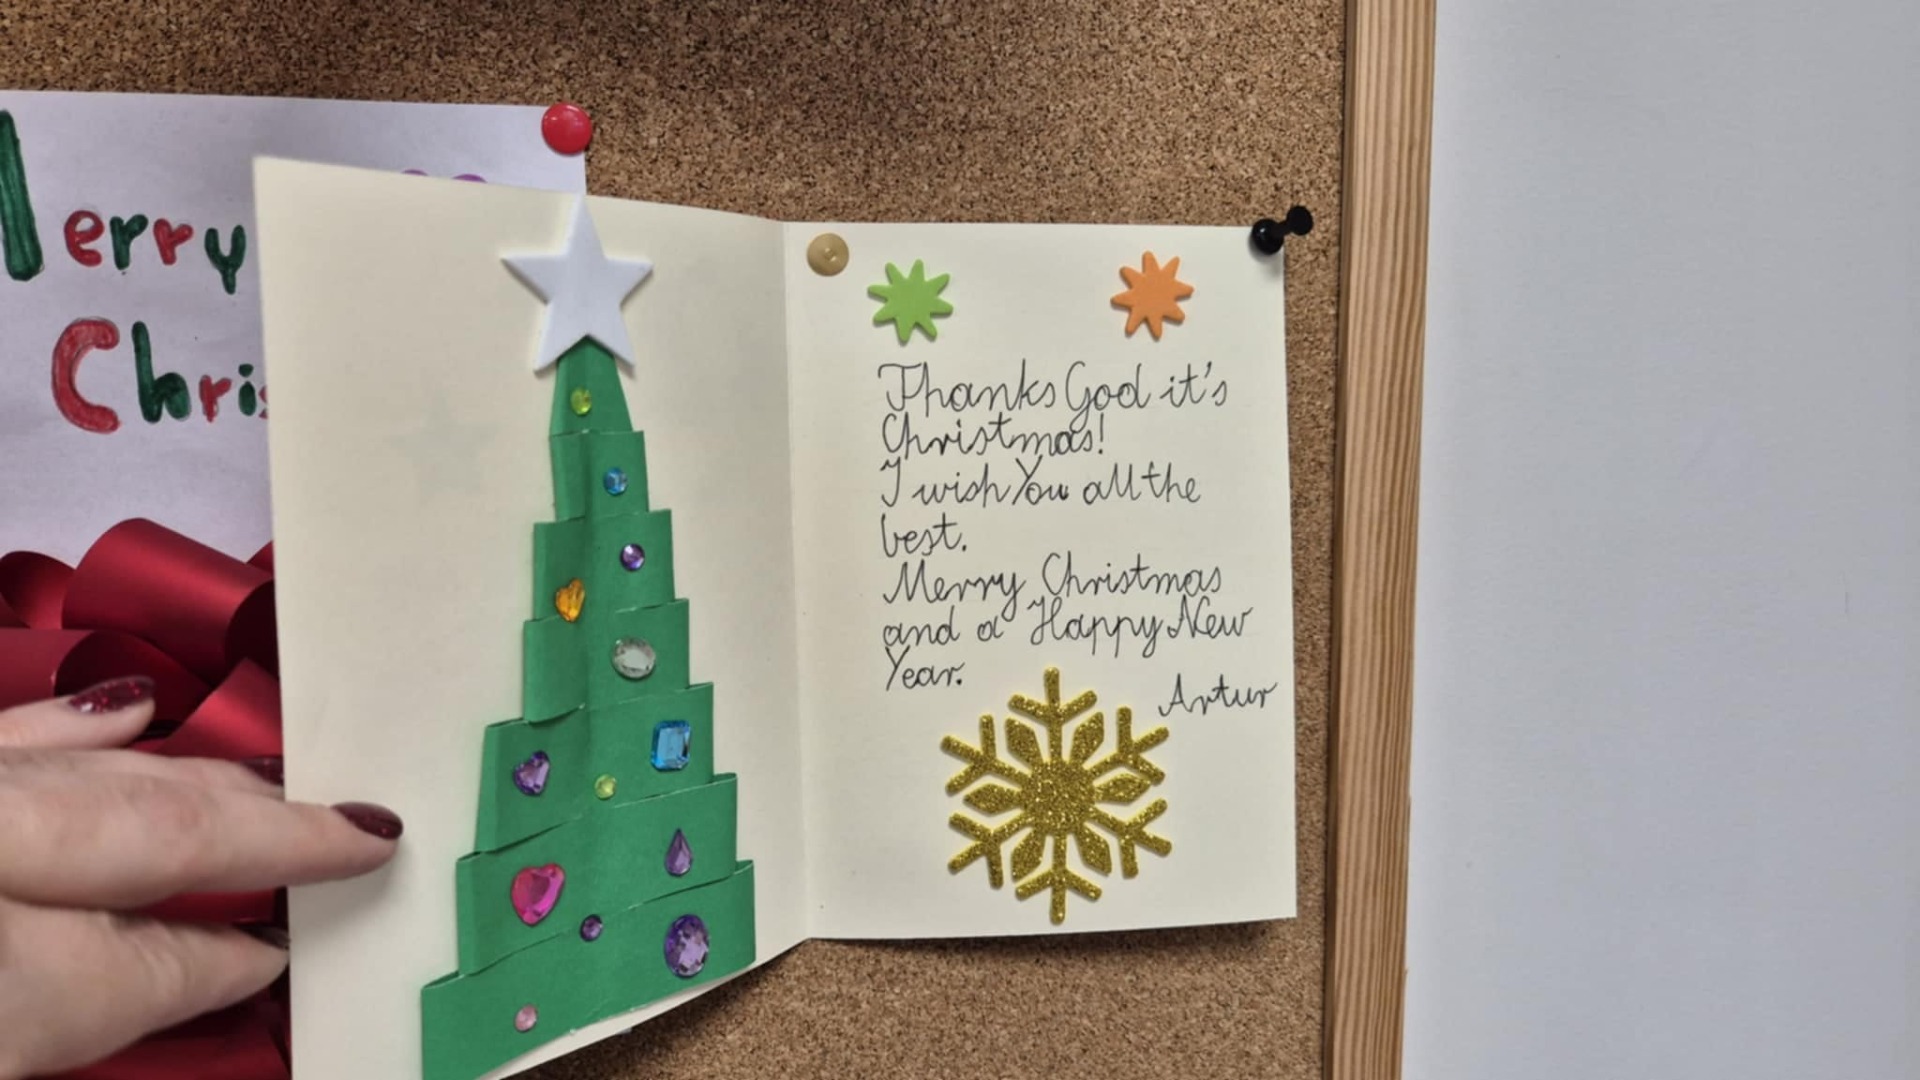 Merry
Chris
Thanks God it's
Christmas!
I wish You all the
best.
Merry Christmas
and a Happy New
Year.
Artur